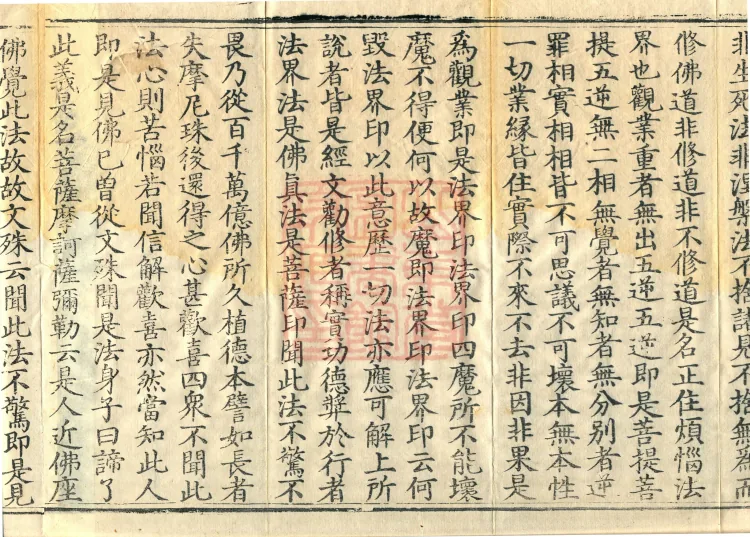 非生死法非涅槃法不捨諸見不捨無爲而
修佛道非修道非不修道是名正住煩惱法
界也觀業重者無出五逆五逆即是菩提菩
提五逆無二相無覺者無知者無分別者逆
罪相實相相皆不可思議不可壞本無本性
一切業緣皆住實際不來不去非因非果是
爲觀業即是法界印法界印四魔所不能壞
魔不得便何以故魔即法界印法界印云何
毀法界印以此意歷一切法亦應可解上所
說者皆是經文勸修者稱實功德奬於行者
法界法是佛眞法是菩薩印聞此法不驚不
畏乃從百千萬億佛所久植德本譬如長者
失摩尼珠後還得之心甚歡喜四衆不聞此
法心則苦惱若聞信解歡喜亦然當知此人
即是見佛已曾從文殊聞是法身子曰諦了
此義是名菩薩摩訶薩彌勒云是人近佛座
佛覺此法故故文殊云聞此法不驚即是見